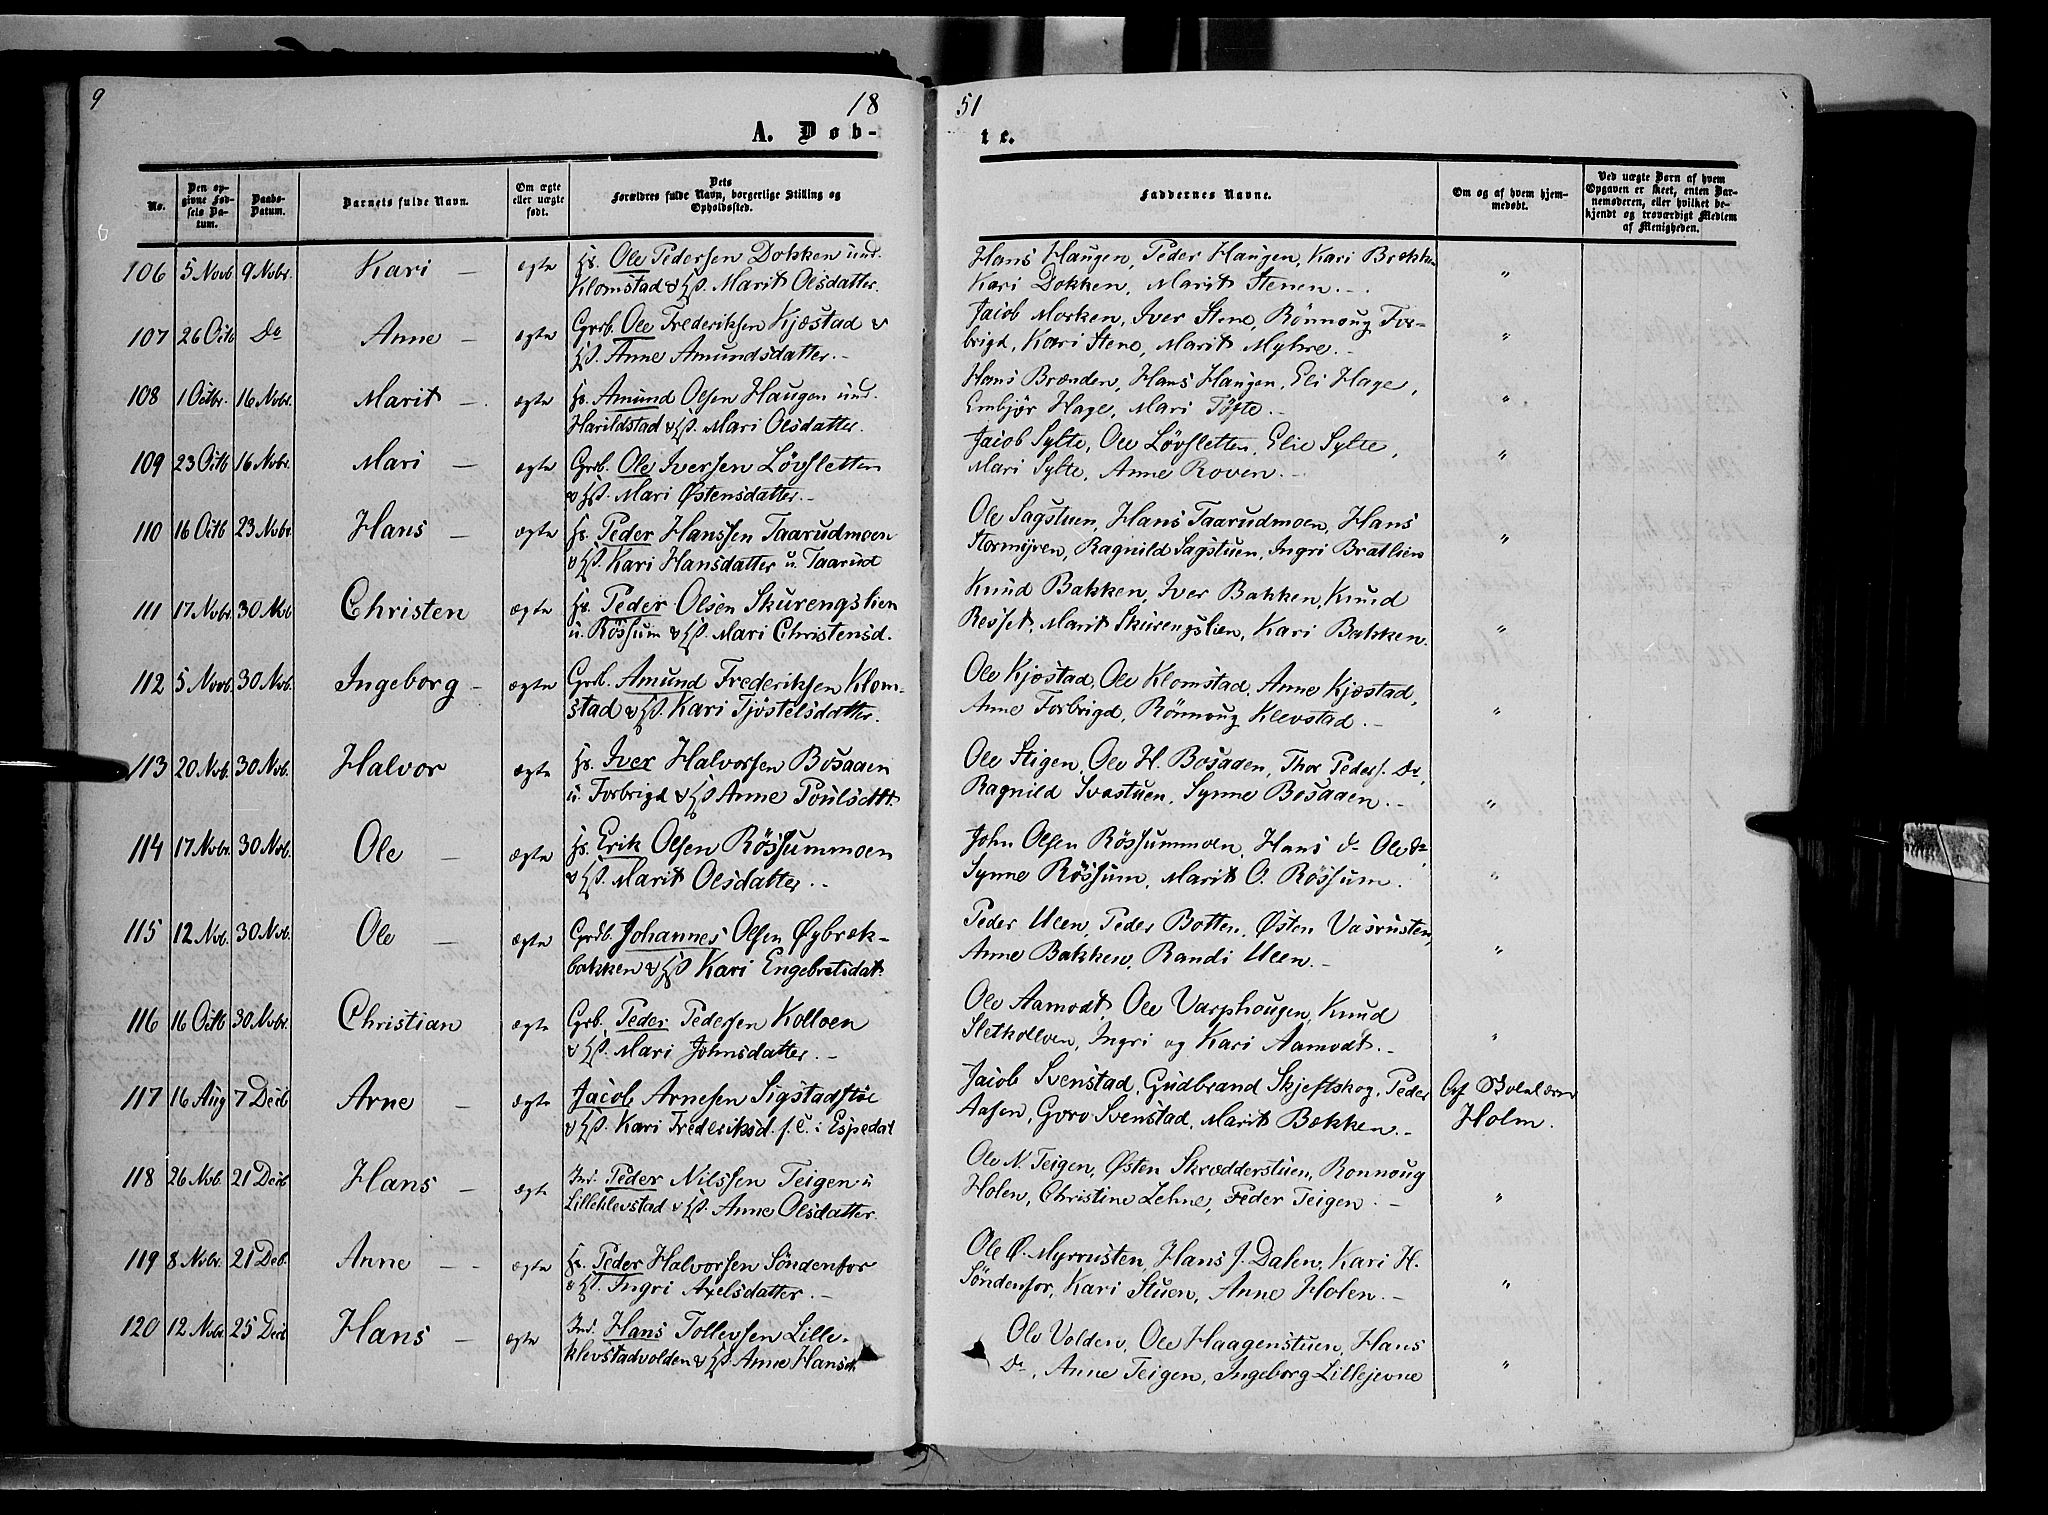 9
18
51
A. Døb-
te.
No.
Den opgivne Fødsels Datum.
Daabs-Datum.
Barnets fulde Navn.
Om ægte eller uægte født.
Dets Forældres fulde Navn, borgerlige Stilling og Opholdssted.
Faddernes Navne.
Om og af hvem hjemmedøbt.
Ved uægte Børn af hvem Opgaven er skeet, enten Barnemoderen, eller hvilket bekjendt og troværdigt Medlem af Menigheden.
106 5 Novb 9 Nvbr. Kari – ægte Hs. Ole Pedersen Dokken und.
Klomstad & Hst. Marit Olsdatter.
Hans Haugen, Peder Haugen, Kari Brækken
Kari Dokken, Marit Stenen. – "
107 26 Octb Do Anne – ægte Grb. Ole Frederiksen Kjæstad &
Hst. Anne Amundsdatter. –
Jacob Morken, Iver Stene, Rönnoug For-
brigd, Kari Stene, Marit Myhre. – "
108 1 Octbr. 16 Nvbr. Marit – ægte Hs. Amund Olsen Haugen und.
Harildstad & Hst. Mari Olsdatter.
Hans Brænden, Hans Haugen, Eli Hage,
Embjör Hage, Mari Töfte. – "
109 23 Octb 16 Nvbr. Mari – ægte Grb. Ole Iversen Lövsletten
& Hst. Mari Østensdatter. –
Jacob Sylte, Ole Lövsletten, Elie Sylte,
Mari Sylte, Anne Roven. – "
110 16 Octb 23 Nvbr. Hans – ægte Hs. Peder Hanssen Taarudmoen
& Hst. Kari Hansdatter u. Taarud
Ole Sagstuen, Hans Taarudmoen, Hans
Stormyren, Ragnild Sagstuen, Ingri Bratlien "
111 17 Nvbr. 30 Nvb Christen ægte Hs. Peder Olsen Skurengslien
u. Rössum & Hst. Mari Christensd.
Knud Bakken, Iver Bakken, Knud
Resset, Marit Skurengslien, Kari Bakken. "
112 5 Novb. 30 Nvb. Ingeborg – ægte Grb. Amund Frederiksen Klom-
stad & Hst. Kari Tjöstelsdatter.
Ole Kjæstad, Ole Klomstad, Anne Kjæstad,
Anne Forbrigd, Rönnoug Klevstad. – "
113 20 Nvb. 30 Nvb. Halvor ægte Hs. Iver Halvorsen Bosaaen
u. Forbrigd & Hst Anne Poulsdtt.
Ole Stigen, Ole H. Bosaaen, Thor Peders. Do,
Ragnild Svestuen, Synne Bosaaen. – "
114 17 Nvbr. 30 Nvb. Ole – ægte Hs. Erik Olsen Rössummoen
& Hst. Marit Olsdatter. –
John Olsen Rössummoen, Hans do Ole do,
Synne Rössum, Marit O. Rössum. "
115 12 Nvb. 30 Nvb. Ole – ægte Grdb. Johannes Olsen Øybræk-
bakken & Hst Kari Engebretsdat.
Peder Ulen, Peder Botten, Østen Vasrusten,
Anne Bakken, Randi Ulen. – "
116 16 Octb 30 Nvbr. Christian ægte Grb. Peder Pedersen Kolloen
& Hst. Mari Johnsdatter. –
Ole Aamodt, Ole Varphougen, Knud
Sletkolloen, Ingri og Kari Aamodt. – "
117 16 Aug 7 Decb Arne – ægte Jacob Arnesen Sigstadstöe
& Hst. Kari Frederiksd. f. E. i Espedal
Jacob Svenstad, Gudbrand Skjeftskog, Peder
Aasen, Goro Svenstad, Marit Bækken. –
Af Skolelærer
Holm.
118 26 Nvb. 21 Decb Hans – ægte Ind. Peder Nilssen Teigen u
Lilleklevstad & Hst. Anne Olsdatter.
Ole N. Teigen, Østen Skrædderstuen, Ronnoug
Holen, Christine Lehne, Peder Teigen. – "
119 8 Nvbr. 21 Deb. Anne – – ægte Hs. Peder Halvorsen Söndenfor
& Hst. Ingri Axelsdatter. –
Ole Ø. Myrrusten, Hans J. Dalen, Kari H.
Söndenfor, Kari Stuen, Anne Holen. – "
120 12 Nvbr 25 Decb Hans – ægte Ind. Hans Tollevsen Lille-
klevstadvolden & Hst. Anne Hansdt.
Ole Volden, Ole Haagenstuen, Hans
Do, Anne Teigen, Ingeborg Lillejevne "